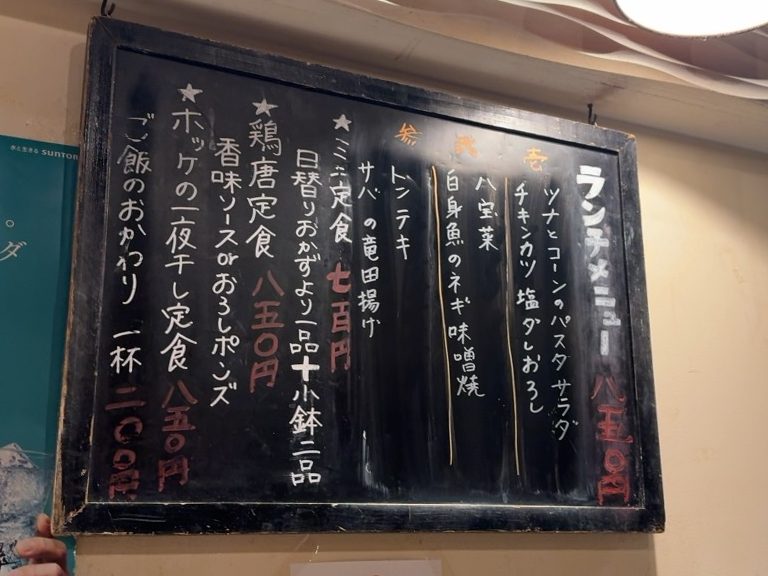 ランチメニュー 八五〇円
壱
ツナとコーンのパスタサラダ
チキンカツ 塩ダレおろし
弐
八宝菜
白身魚のネギ味噌焼
参
トンテキ
サバの竜田揚げ
★ミニ定食 七百円
日替りおかずより一品+小鉢二品
★鶏唐定食 八五〇円
香味ソースorおろしポンズ
★ホッケの一夜干し定食 八五〇円
ご飯のおかわり 一杯 二〇〇円
水と生きる SUNTO
。
ダ